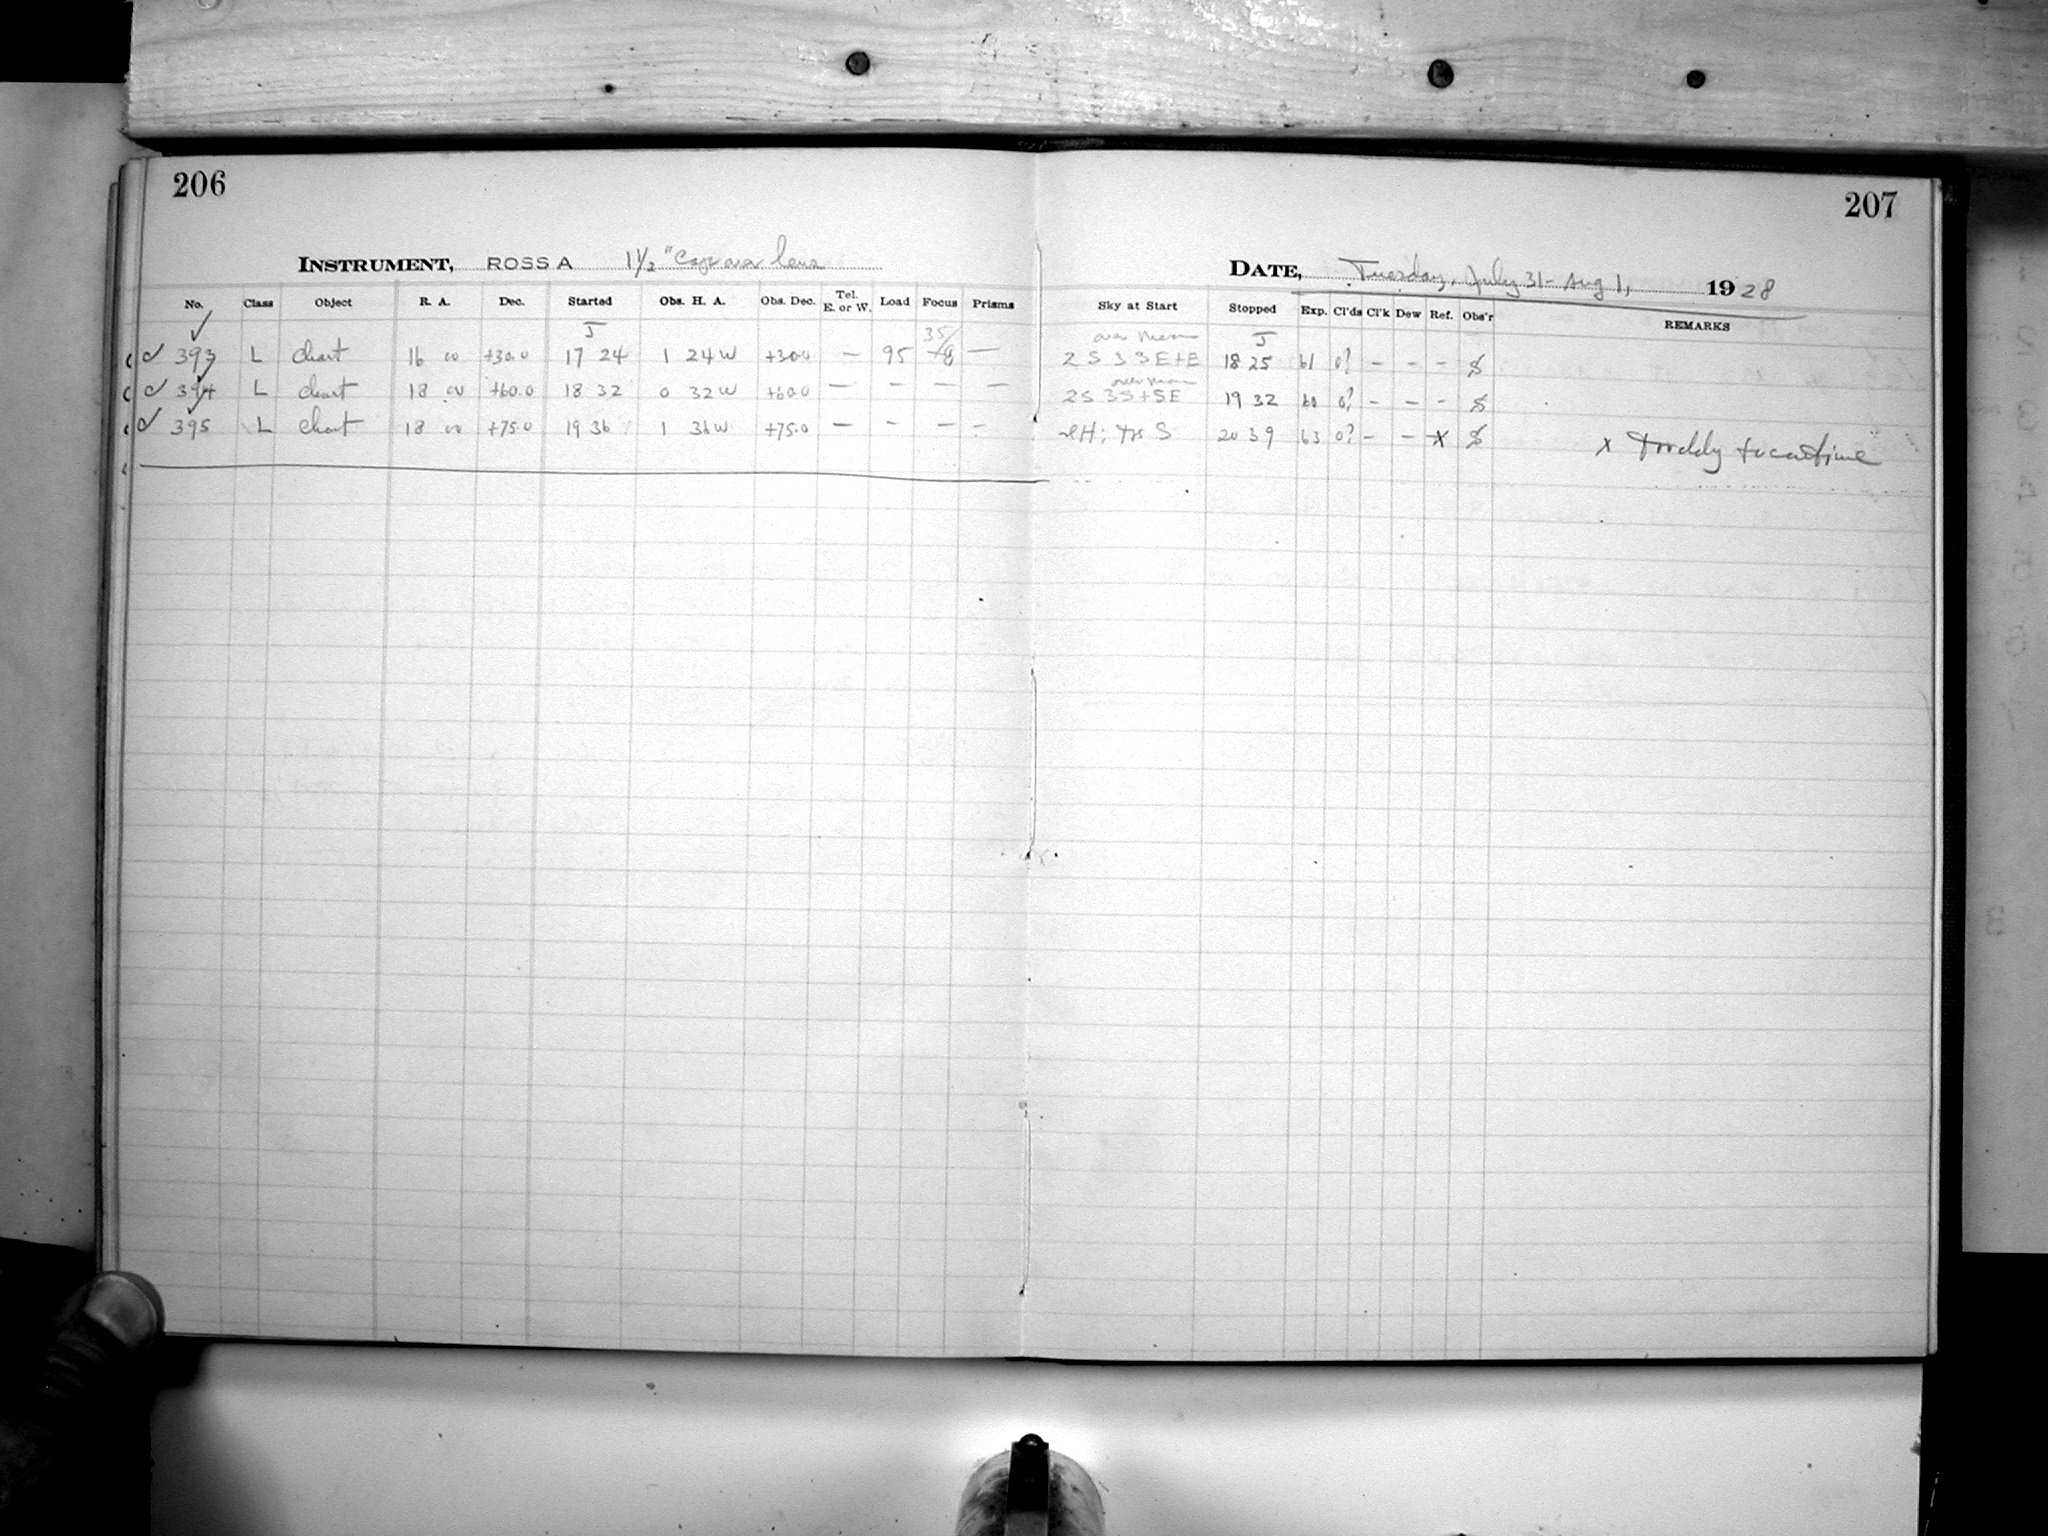 206
207
INSTRUMENT, ROSS A 1½" Cap over lens
DATE, Tuesday, July 31 - Aug 1, 1928
No. Class Object R. A. Dec. Started Obs. H. A. Obs. Dec. Tel. E. or W. Load Focus Prisms Sky at Start Stopped Exp. Cl'ds Cl'k Dew Ref. Obs'r REMARKS
393 L chart 16 00 +30.0 17 24 1 24 W +30.0 — 95 — 18 25 61 0? - - -
394 L chart 18 00 +60.0 18 32 0 32 W +60.0 — - - — 2S 3S+SE 19 32 60 0? - - -
395 L chart 18 00 +75.0 19 36 1 36 W +75.0 — - — - 20 39 63 0? - - x x